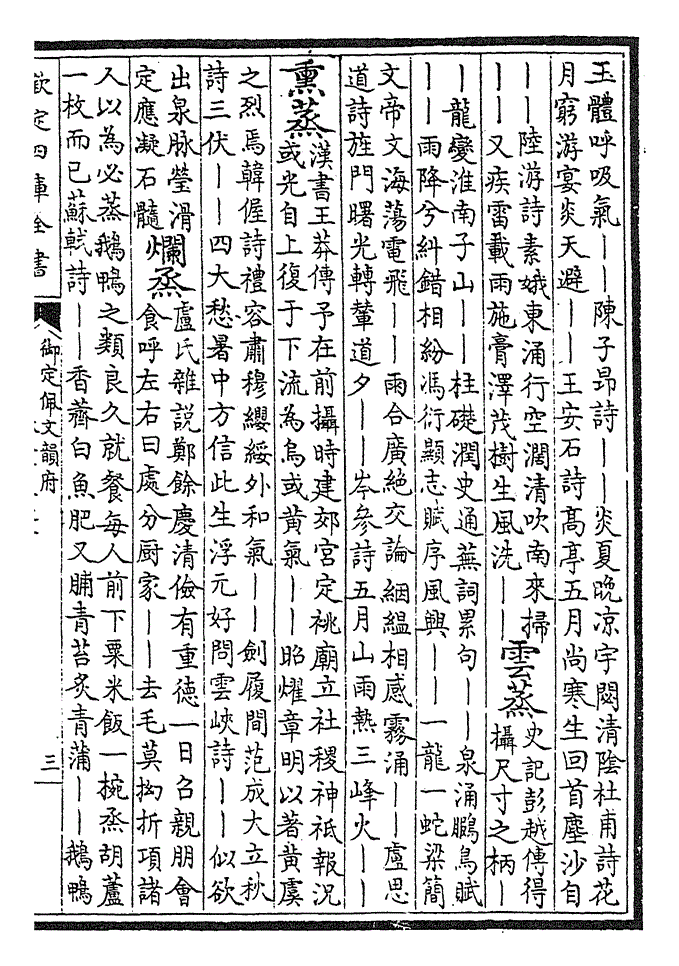 玉體呼吸氣——陳子昻詩——炎夏晚凉宇闃清陰杜甫詩花
月窮游宴炎天避——王安石詩髙亭五月尚寒生回首塵沙自
——陸游詩素娥東涌行空濶清吹南來掃
——又疾雷載雨施膏澤茂樹生風洗——
雲蒸
史記彭越傳得
攝尺寸之柄—
—龍變淮南子山——柱礎潤史通蕪詞累句——泉涌鵩鳥賦
——雨降兮糾錯相紛馮衍顯志賦序風興——一龍一蛇梁簡
文帝文海蕩電飛——雨合廣絶交論絪緼相感霧涌——盧思
道詩旌門曙光轉輦道夕——岑參詩五月山雨熱三峰火——
熏蒸
漢書王莽傳予在前攝時建郊宮定祧廟立社稷神祗報况
或光自上復于下流為烏或黄氣——昭燿章明以著黄虞
之烈焉韓偓詩禮容肅穆纓綏外和氣——劍履間范成大立秋
詩三伏——四大愁暑中方信此生浮元好問雲峽詩——似欲
出泉脉瑩滑
定應凝石髓
爛烝
盧氏雜説鄭餘慶清儉有重德一日召親朋會
食呼左右曰處分厨家——去毛莫拗折項諸
人以為必蒸鵝鴨之類良久就餐每人前下粟米飯一椀烝胡蘆
一枚而已蘇軾詩——香薺白魚肥又脯青苔炙青蒲——鵝鴨
欽定四庫全書
御定佩文韻府
三